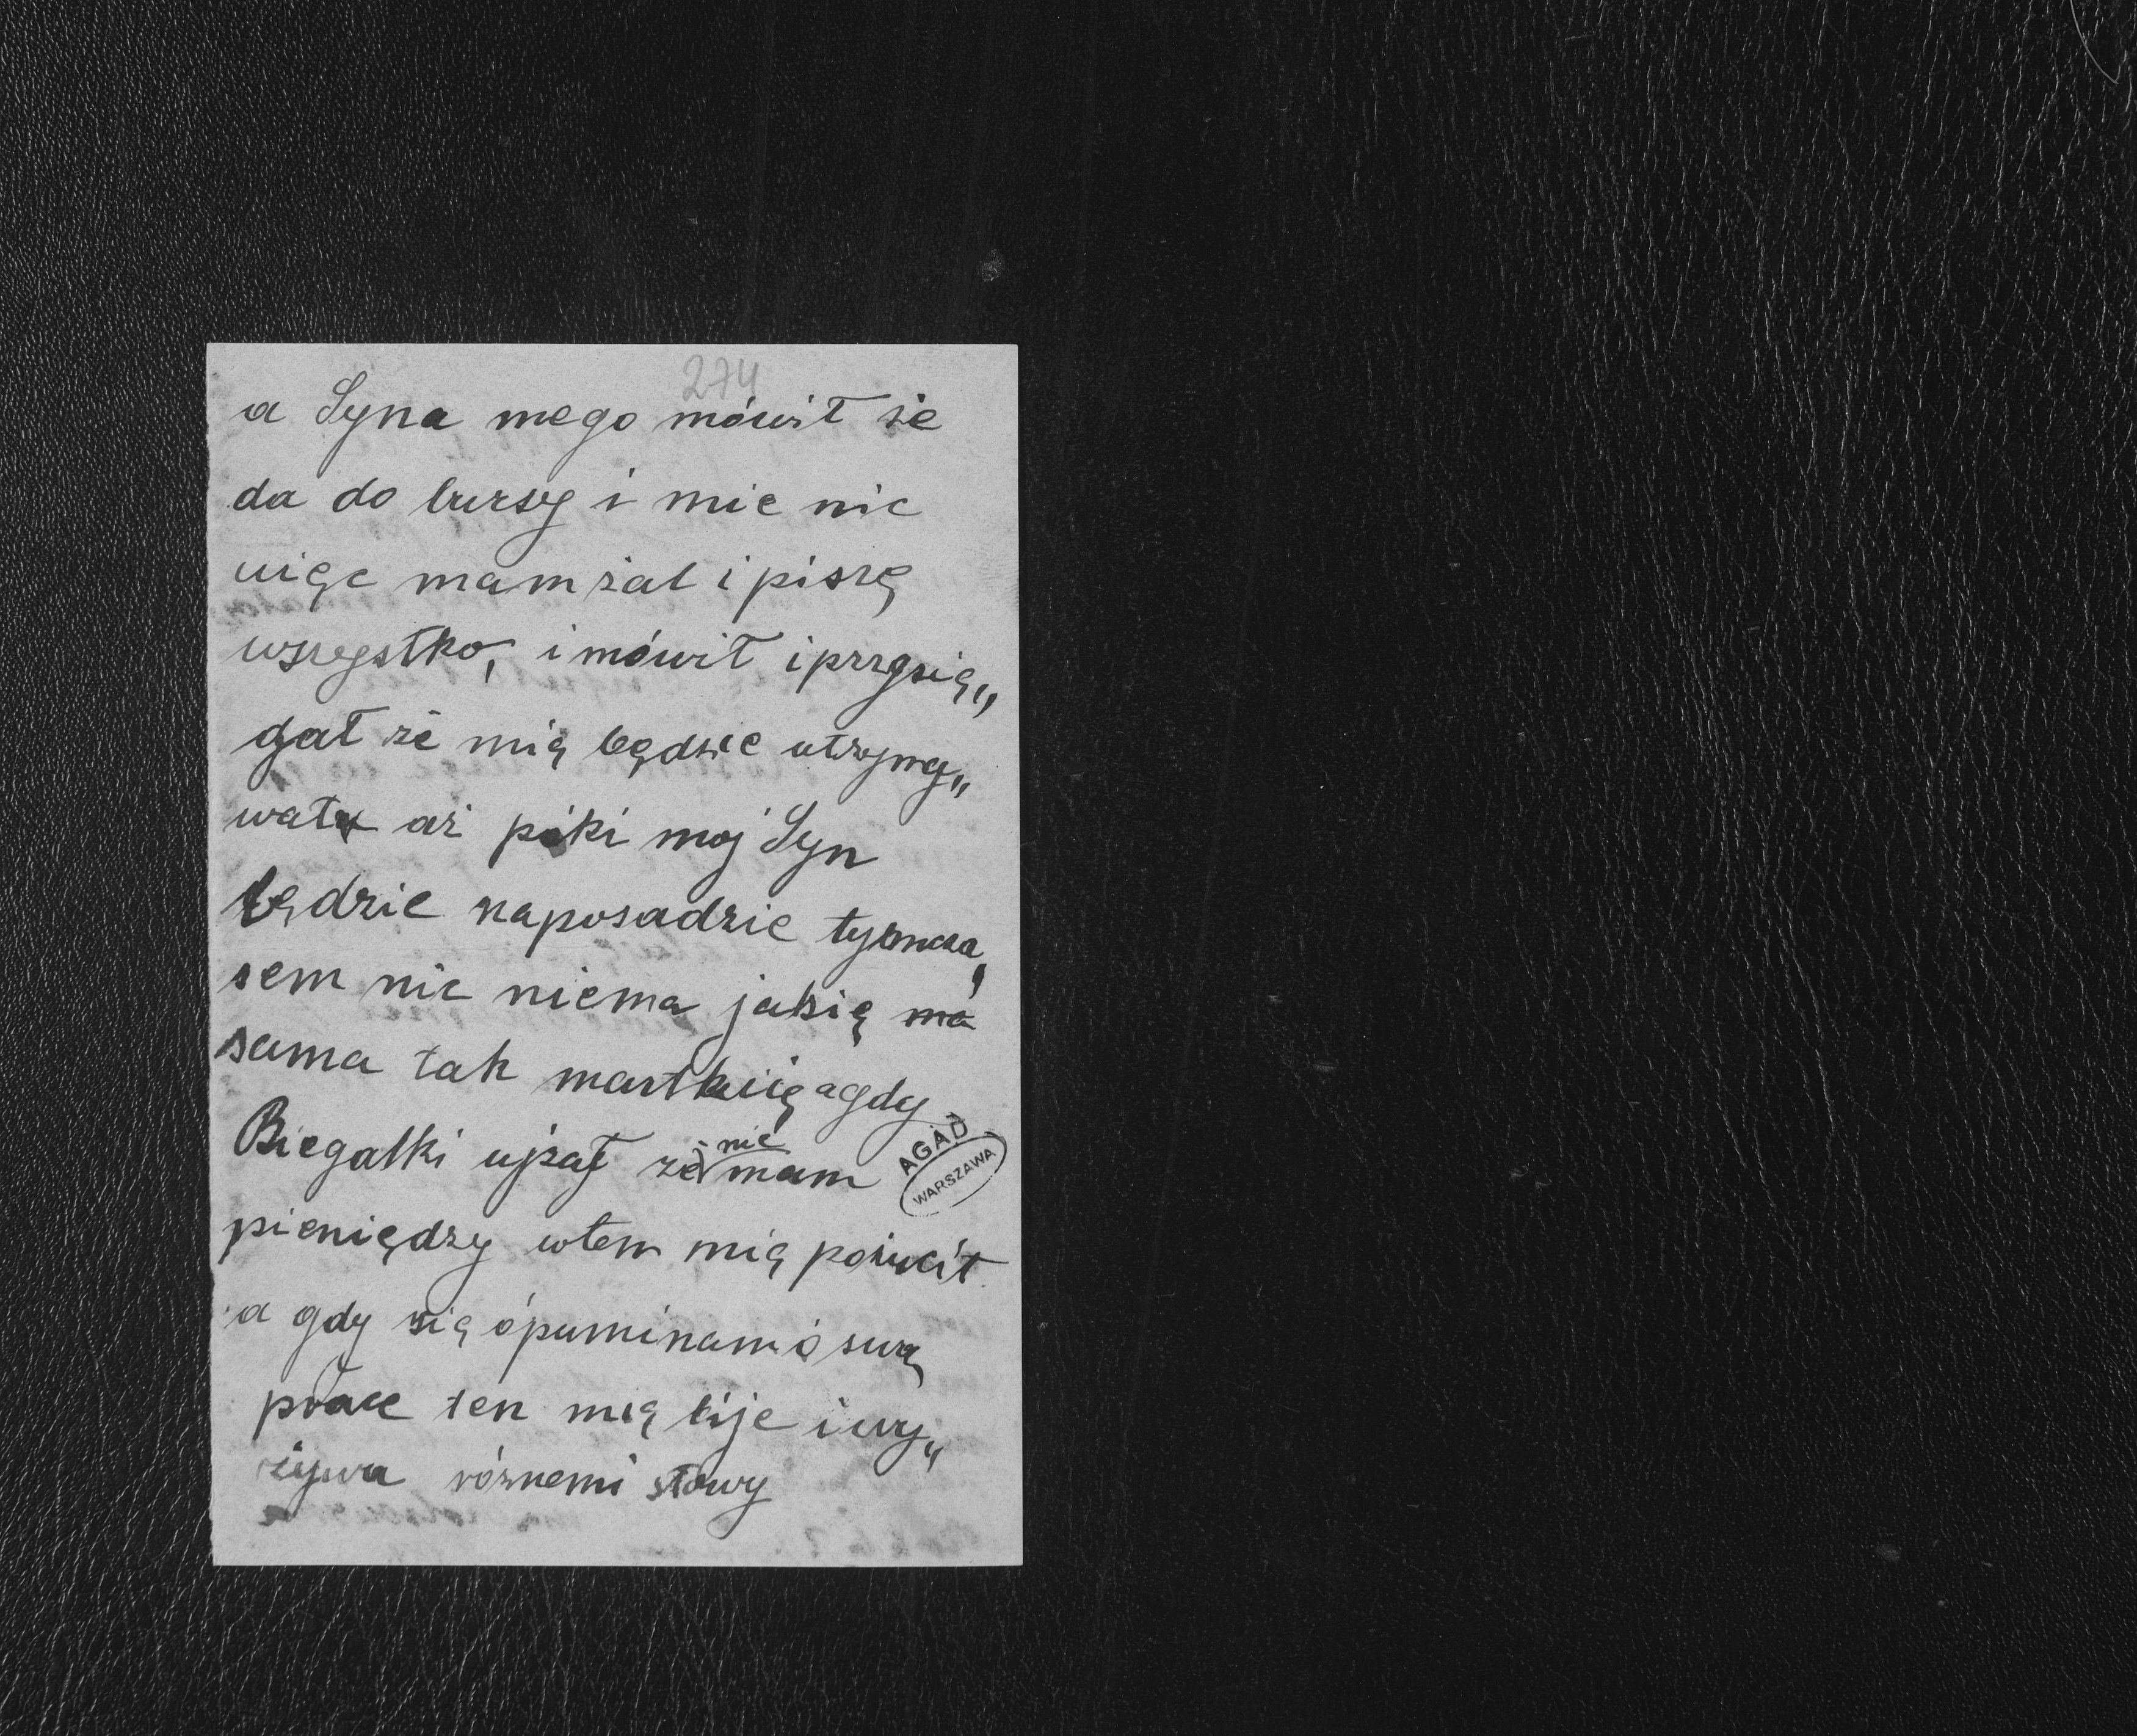 274
a Syna mego mówił że
da do bursy i mie nic
więc mam żal i piszę
wszystko, i mówił i przysię„
gał że mię będzie utrzymy„
wał aż póki moj Syn
będzie naposadzie tymcza„
sem nic niema jaksię ma
sama tak martwię agdy
Biegalki ujżał że nie mam
pieniędzy wtem mię pożucit
a gdy się ópuminam ó swą
prace ten mię bije i wy„
zywa róznemi słowy
AGAD
WARSZAWA